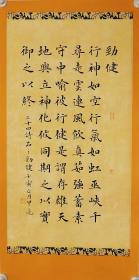 勁健
行神如空行氣如虹巫峽千
尋走雲連風飲真茹強蓄素
守中喻彼行健是謂存雄天
地與立神化攸同期之以實
御之以終